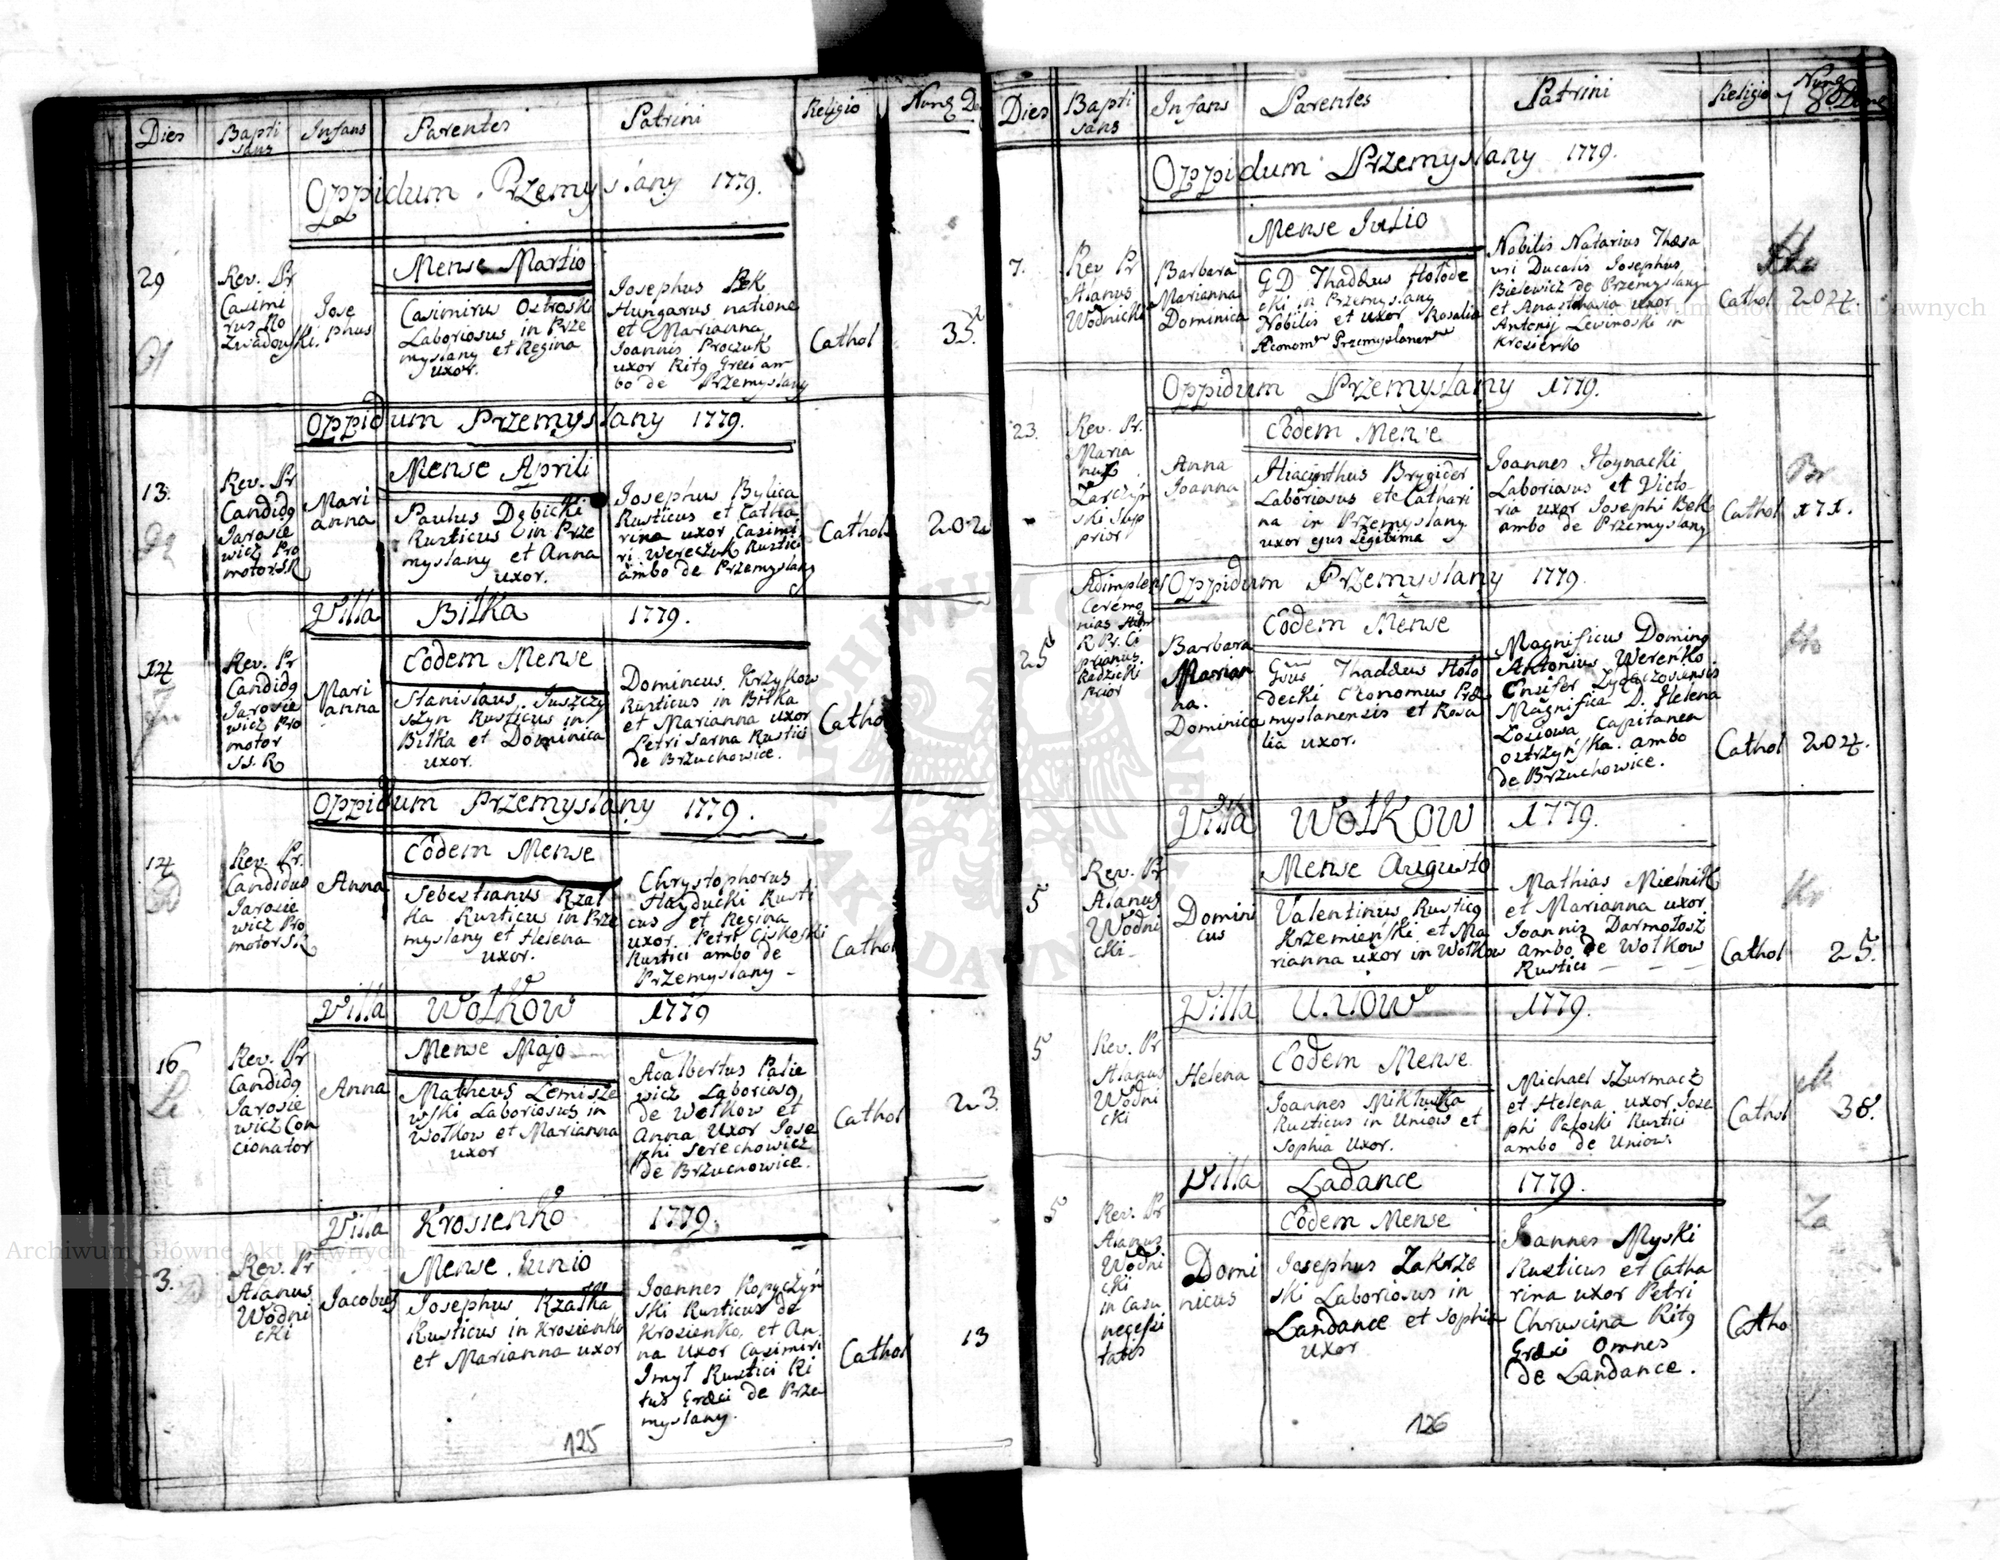 Dies Bapti Infans Parentes Patrini Religio Numq
sans
Oppidum Przemyslany 1779.
Mense Martio
29
Rev. Pr
Casimi
rus Ro
zwadowski.
Jose
phus
Casimirus Ostroski
Laboriosus in Prze
myslany et Regina
uxor.
Josephus Bek
Hungarus natione
et Marianna
Joannis Proczuk
uxor Ritq Greci am
bo de Przemyslany
Cathol
35.
Oppidum Przemyslany 1779.
Mense Aprili
13.
Rev. Pr
Candidq
Jarosie
wicz Pro
motor S.R
Mari
anna
Paulus Dębicki
Rusticus in Prze
myslany et Anna
uxor.
Josephus Bylica
Rusticus et Catha
rina uxor Casimi
ri Wereczuk Rustici
ambo de Przemyslany
Cathol
202
Villa Biłka 1779.
Eodem Mense
14
Rev. Pr
Candidq
Jarosie
wicz Pro
motor
SS. R
Mari
anna
Stanislaus Juszczy
szyn Rusticus in
Biłka et Dominica
uxor.
Domincus Krzykow
Rusticus in Biłka
et Marianna uxor
Petri Sarna Rustici
de Brzuchowice.
Cathol
Oppidum Przemyslany 1779.
Eodem Mense
14
Rev. Pr.
Candidus
Jarosie
wicz Pro
motor S.R
Anna
Sebestianus Rzat
ka Rusticus in Prze
myslany et Helena
uxor.
Chrystophorus
Hayducki Rusti
cus et Regina
uxor Petri Ciskoski
Rustici ambo de
Przemyslany
Cathol
Villa Wołkow 1779
Mense Majo
16
Rev. Pr
Candidq
Jarosie
wicz Con
cionator
Anna
Matheus Lemisze
wski Laboriosus in
Wołkow et Marianna
uxor
Adalbertus Palie
wicz Laboriosq
de Wołkow et
Anna Uxor Jose
phi Serechowicz
de Brzuchowice.
Cathol
23.
Villa Krosienko 1779.
Mense Junio
3.
Rev. Pr
Alanus
Wodni
cki
Jacobus
Josephus Rzatka
Rusticus in Krosienko
et Marianna uxor
Joannes Kopyczyń
ski Rusticus de
Krosienko, et An
na Uxor Casimiri
Rustici Ri
tus Græci de Prze
myslany.
Cathol
13
125
Dies Bapti Infans Parentes Patrini Religio
sans
Oppidum Przemyslany 1779.
Mense Julio
7.
Rev Pr
Alanus
Wodnicki
Barbara
Marianna
Dominica
G D Thaddæus Hołode
cki in Przemyslany
Nobilis et uxor Rosalia
Nobilis Notarius Thesa
uri Ducalis Josephus
Bielewicz de Przemyslany
et Anasthasia uxor
Antony Lewinoski in
Krosienko
Cathol 204.
Oppidum Przemyslany 1779.
Eodem Mense
23.
Rev. Pr.
Maria
nus
Zarczyń
ski Sup
prior
Anna
Joanna
Hiacinthus Brygider
Laboriosus etc Cathari
na in Przemyslany
uxor ejus Legitima
Joannes Hoynacki
Laboriosus et Victo
ria uxor Josephi Bek
ambo de Przemyslany
Cathol 171.
Oppidum Przemyslany 1779.
Eodem Mense
25
Adimplens
Ceremo
nias
R. Pr. Ci
prianus
Radzicki
Prior
Barbara
Marian
na.
Dominica
Gsus Thaddæus Hoło
decki Œconomus Prze
myslanensis et Rosa
lia uxor.
Magnificus Doming
Antonius Werenko
Ensifer Zydaczoviensis
Magnifica D. Helena
Łosiowa Capitanea
Ostrzyńska ambo
de Brzuchowice.
Cathol 204.
Villa Wołkow 1779.
Mense Augusto
5
Rev. Pr
Alanus
Wodni
cki
Domini
cus
Valentinus Rusticq
Krzemieński et Ma
rianna uxor in Wołkow
Mathias Mielnik
et Marianna uxor
Joannis Darmołosz
ambo de Wołkow
Rustici
Cathol 25.
Villa Uniow 1779.
Eodem Mense
5
Rev. Pr
Alanus
Wodni
cki
Helena
Joannes Mikituka
Rusticus in Uniow et
Sophia Uxor.
Michael Szurmacz
et Helena uxor Jose
phi Paloski Rustici
ambo de Uniow.
Cathol 38.
Villa Ladance 1779.
Eodem Mense
5
Rev. Pr
Alanus
Wodni
cki
in Casu
necessi
tatis
Domi
nicus
Josephus Zakrze
ski Laboriosus in
Landance et Sophia
uxor
Joannes Myski
Rusticus et Catha
rina uxor Petri
Chruscina Ritq
Græci Omnes
de Landance.
Catho
126
Archiwum Główne Akt Dawnych
Archiwum Główne Akt Dawnych
ARCHIWUM GŁÓWNE AKT DAWNYCH